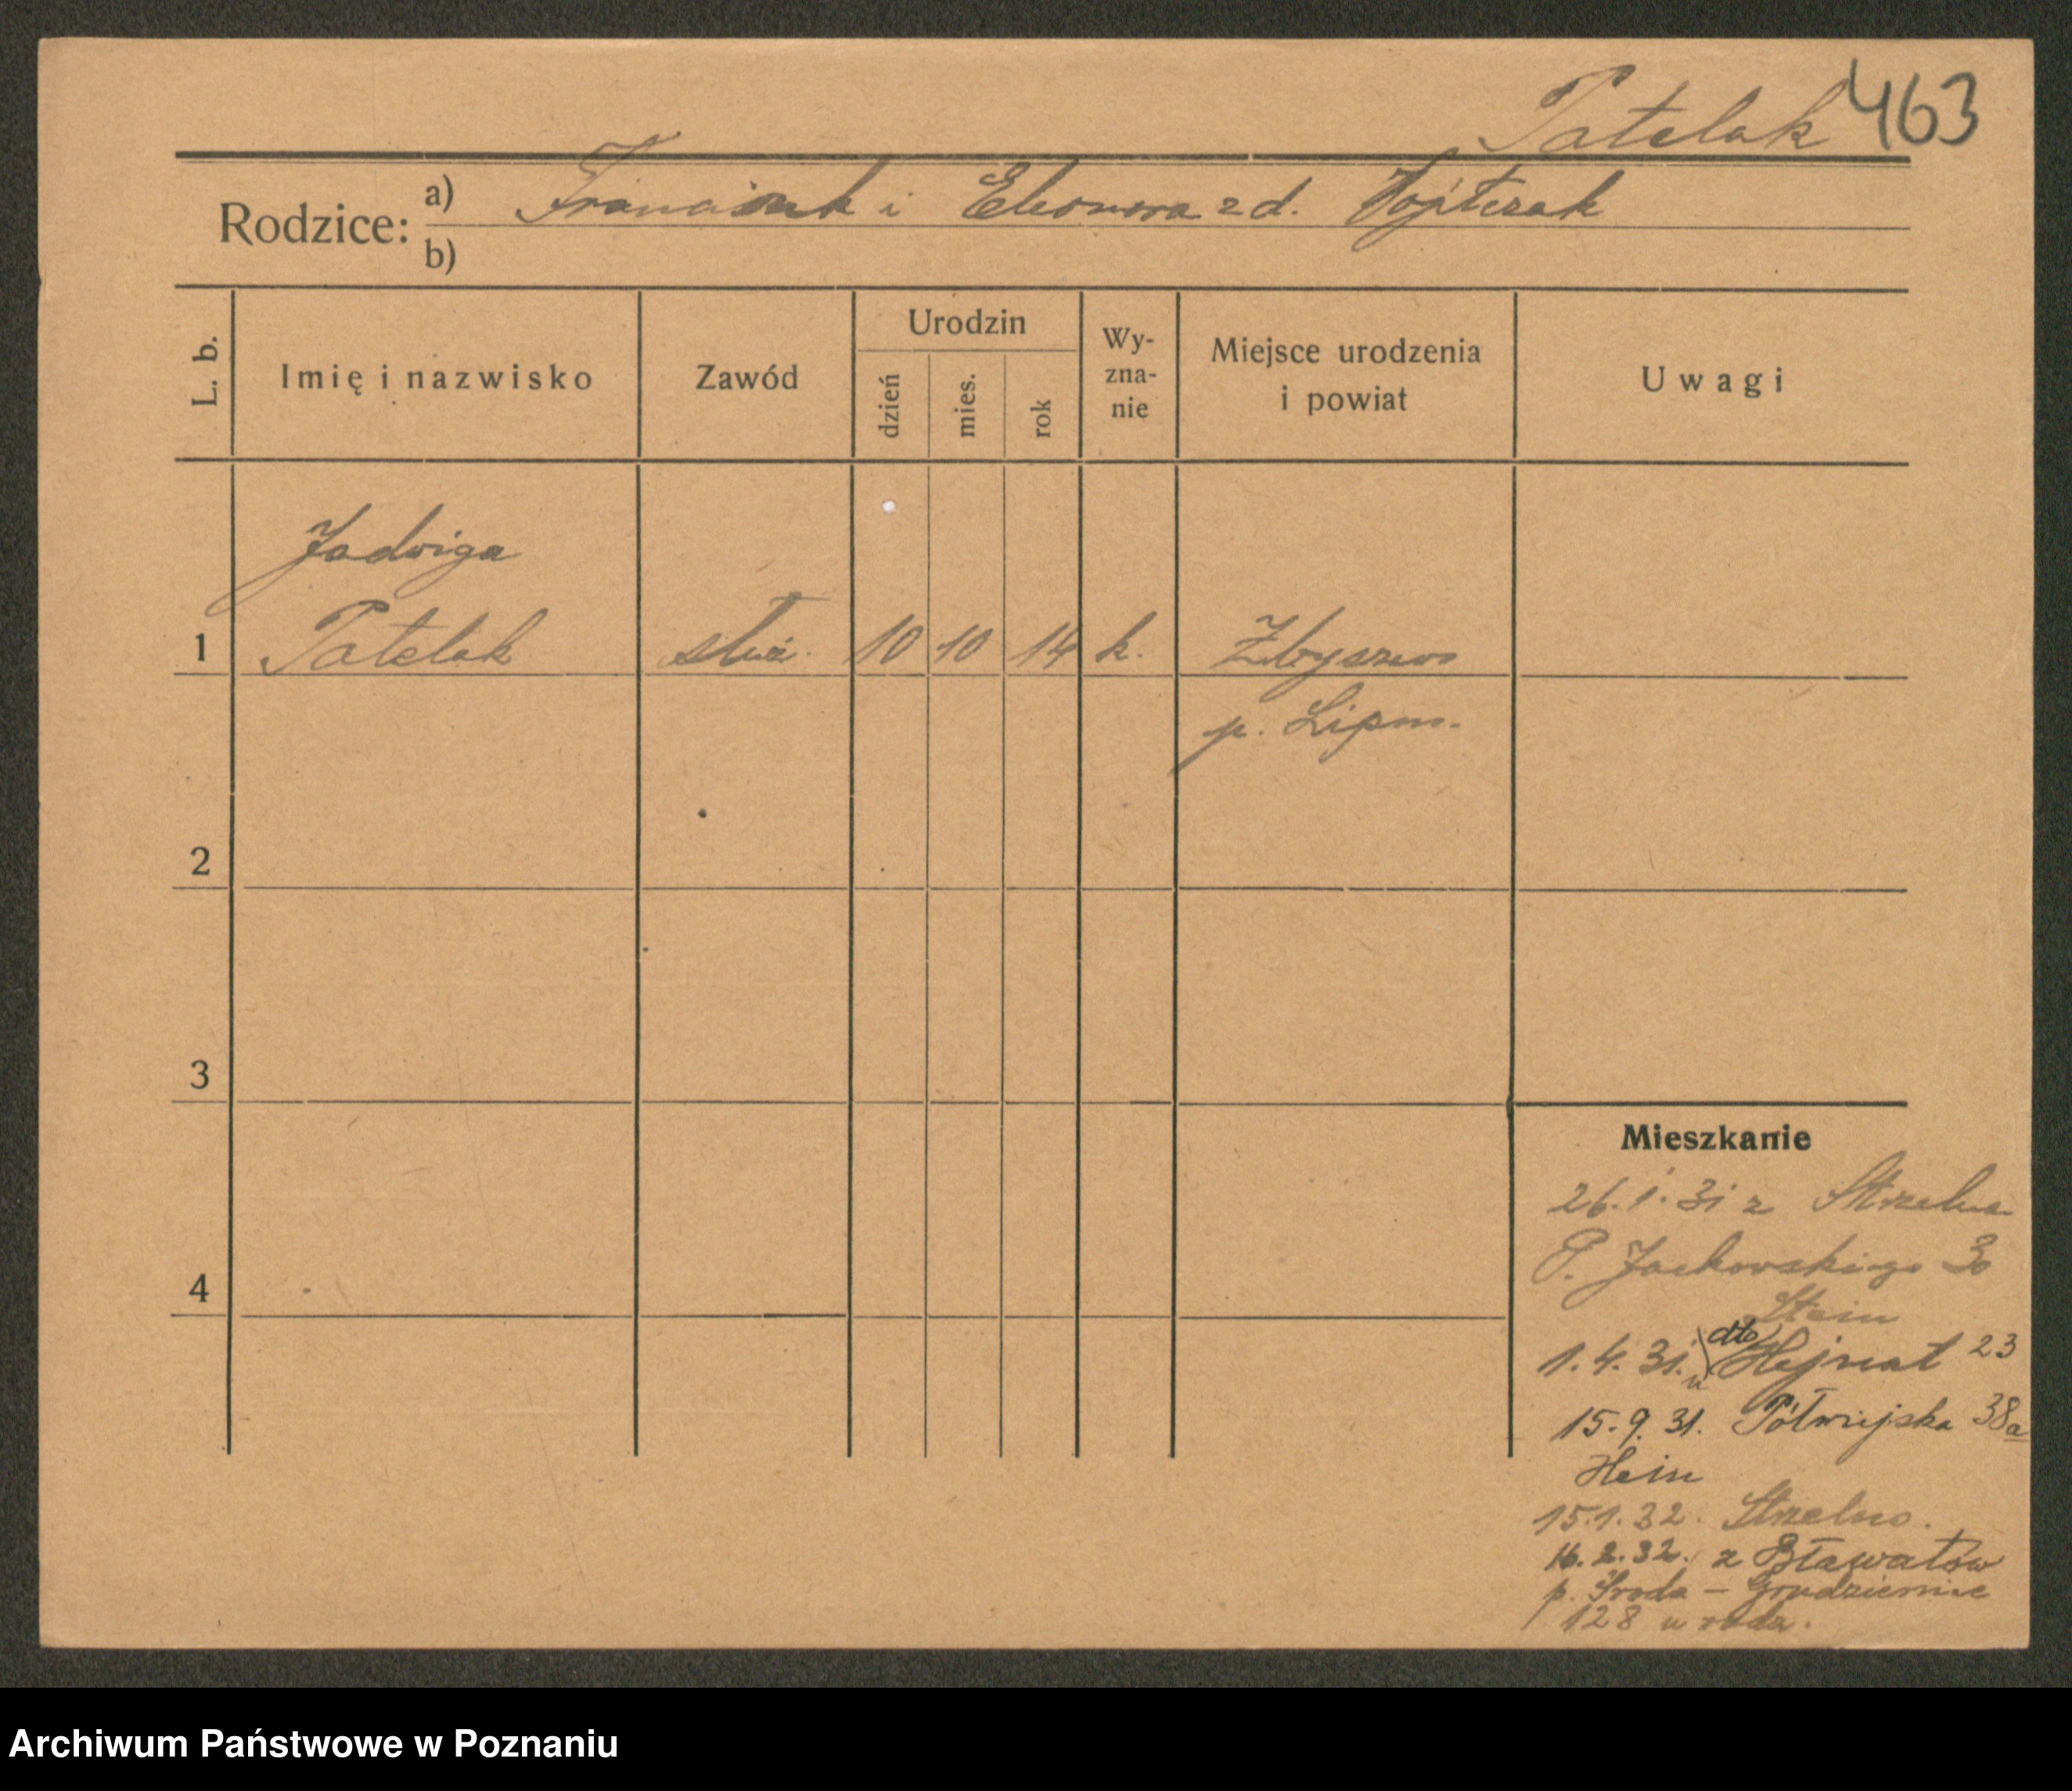 Patelak 463
Rodzice: a) Franciszek i Eleonora z d. Wojtczak
b)
L. b. Imię i nazwisko Zawód Urodzin dzień mies. rok Wy-zna-nie Miejsce urodzenia i powiat Uwagi
Jadwiga
1 Patelak służ. 10 10 14 k. Zbyszewo
p. Lipno.
2
3
4
Mieszkanie
26.1.31 z Strzelna
P. Jackowskiego 30
Stein
1.4.31. dto Hejnat 23
u
15.9.31. Półwiejska 38a
Hein
15.1.32. Strzelno.
16.2.32. z Bławatów
p. Środa – Grudzieniec
128 u rodz.
Archiwum Państwowe w Poznaniu